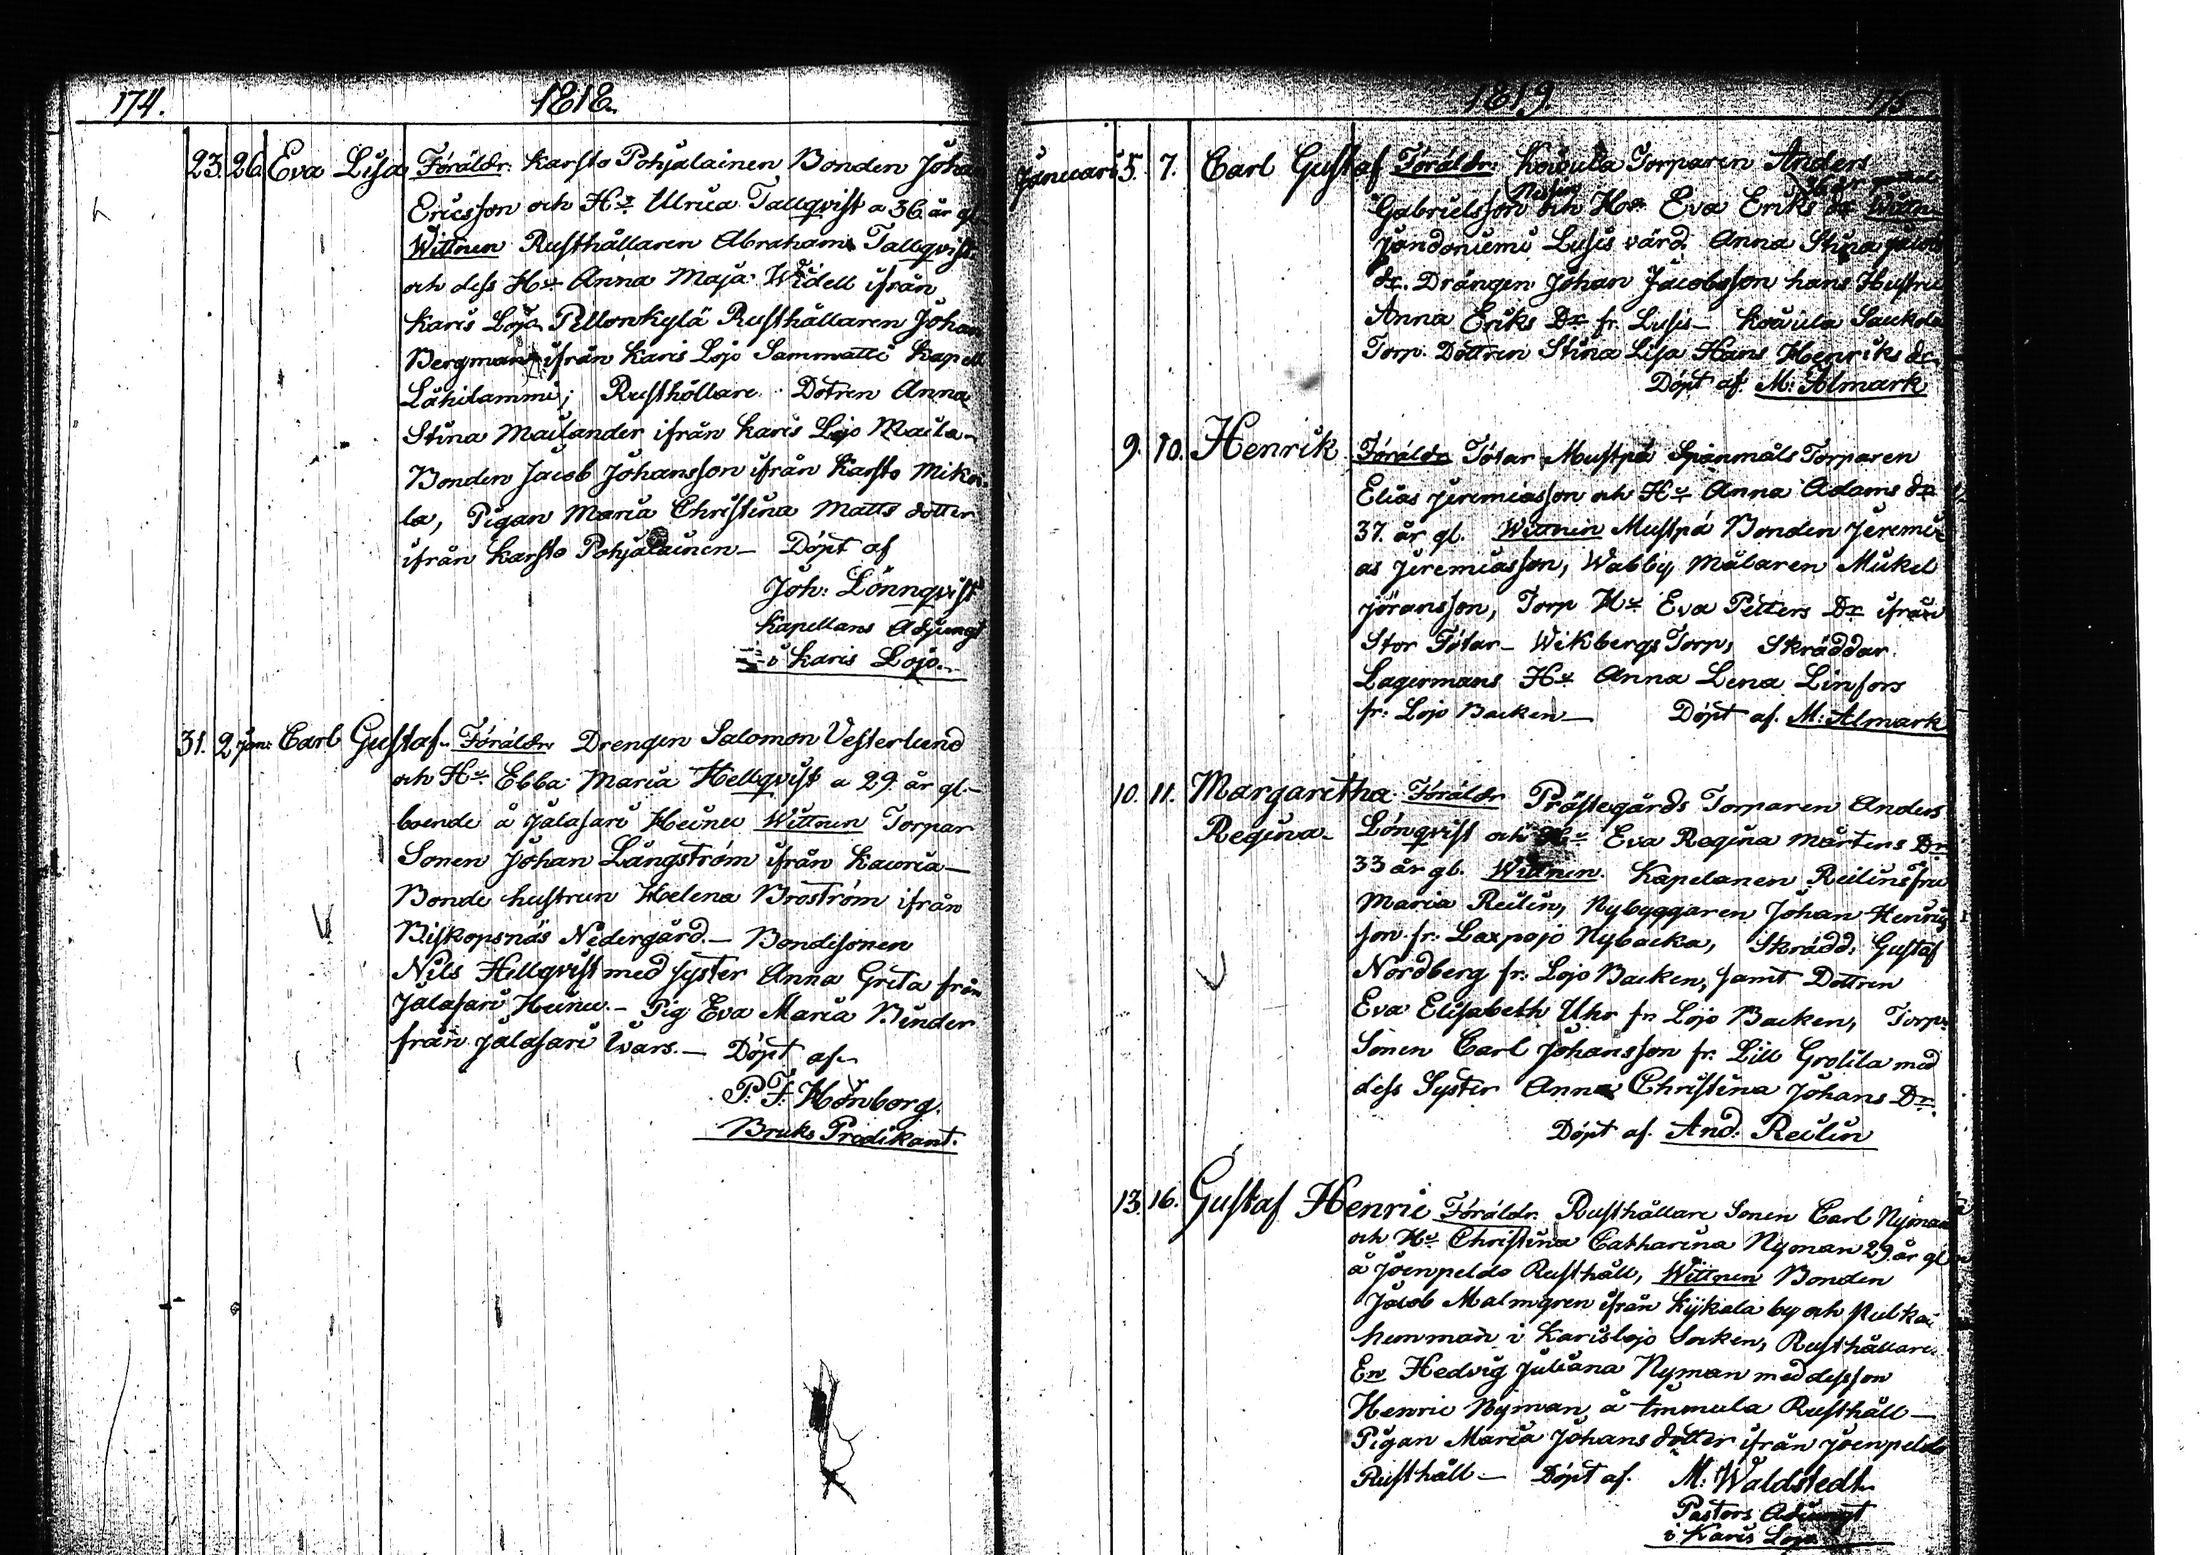 174.
1818.
23. 26. Eva Lisa Föräldr. Karsto Pohjalainen Bonden Johan
Ericsson och Hu Ulrica Tallqvist a 36 år gl
Wittnen Rusthållaren Abraham Tallqvist
och dess Hu Anna Maja Widell ifrån
Karis Lojo Pellonkylä Rusthållaren Johan
Bergman ifrån Karis Lojo Sammatti Kapell
Lähilammi; Rusthållare Dotren Anna
Stina Mailander ifrån Karis Lojo Maila-
Bonden Jacob Johansson ifrån Karsto Miko-
la, Pigan Maria Christina Matts dotter
ifrån Karsto Pohjalainen - Döpt af
Joh: Lönnqvist
Kapellans Adjungt
i Karis Lojo.
31. 2 Jan: Carl Gustaf. Föräldr. Drengen Salomon Vesterlund
och Hu Ebba Maria Hellqvist a 29. år gl-
boende å Jalasari Heinu Wittnen Torpar
Sonen Johan Långström ifrån Kauria-
Bonde hustrun Helena Broström ifrån
Biskopsnäs Nedergård. - Bondesonen
Nils Hellqvist med syster Anna Greta från
Jalasari Heinu. - Pig Eva Maria Binder
från Jalasari Ivars. - Döpt af
P. F. Hönborg.
Bruks Predikant.
1819
175
Januari 5. 7. Carl Gustaf Föräldr. Koivula Torparen Anders
Gabrielsson och Hu Eva Eriks dr 36 år
Lusis värd. Anna Stina
dr. Drängen Johan Jacobsson hans Hustru
Anna Eriks Dr fr. Lusis - Koivula
Torp. Dottren Stina Lisa Hans Henriks dr.
Döpt af: M: Almark
9. 10. Henrik Föräldr. Tötar Mustpä Spanmåls Torparen
Elias Jeremiasson och Hu Anna Adams dr
37. år gl. Wittnen Mustpä Bonden Jeremi-
as Jeremiasson, Wabby Målaren Mikel
Jöransson, Torp Hu Eva Petters Dr ifrån
Stor Tötar - Wikbergs Torp, Skräddar
Lagermans Hu Anna Lena Linfors
fr: Lojo Backen - Döpt af. M: Almark
10. 11. Margaretha Föräldr Prästegårds Torparen Anders
Regina - Lönqvist och Hu Eva Regina Mårtens Dr
33 år gl. Wittnen. Kapelanen Reilins fru
Maria Reilin, Nybyggaren Johan Henrics
son fr. Laxpojo Nybacka, Skrädd: Gustaf
Nordberg fr. Lojo Backen, samt Dottren
Eva Elisabeth Uhr fr Lojo Backen, Torp.
Sonen Carl Johansson fr. Lill Grotila med
dess Syster Anna Christina Johans Dr.
Döpt af. And: Reilin
13. 16. Gustaf Henric Föräldr. Rusthållare Sonen Carl Nyman
och Hu Christina Catharina Nyman 29. år gl
å Joenpeldo Rusthåll, Wittnen Bonden
Jacob Malmgren ifrån Kykala by och
hemman i Karislojo Socken, Rusthållare
En Hedvig Juliana Nyman med dess son
Henric Nyman å Immula Rusthåll -
Pigan Maria Johans dotter ifrån Joenpeldo
Rusthåll - Döpt af. M: Waldstedt
Pastors Adjungt
i Karis Lojo